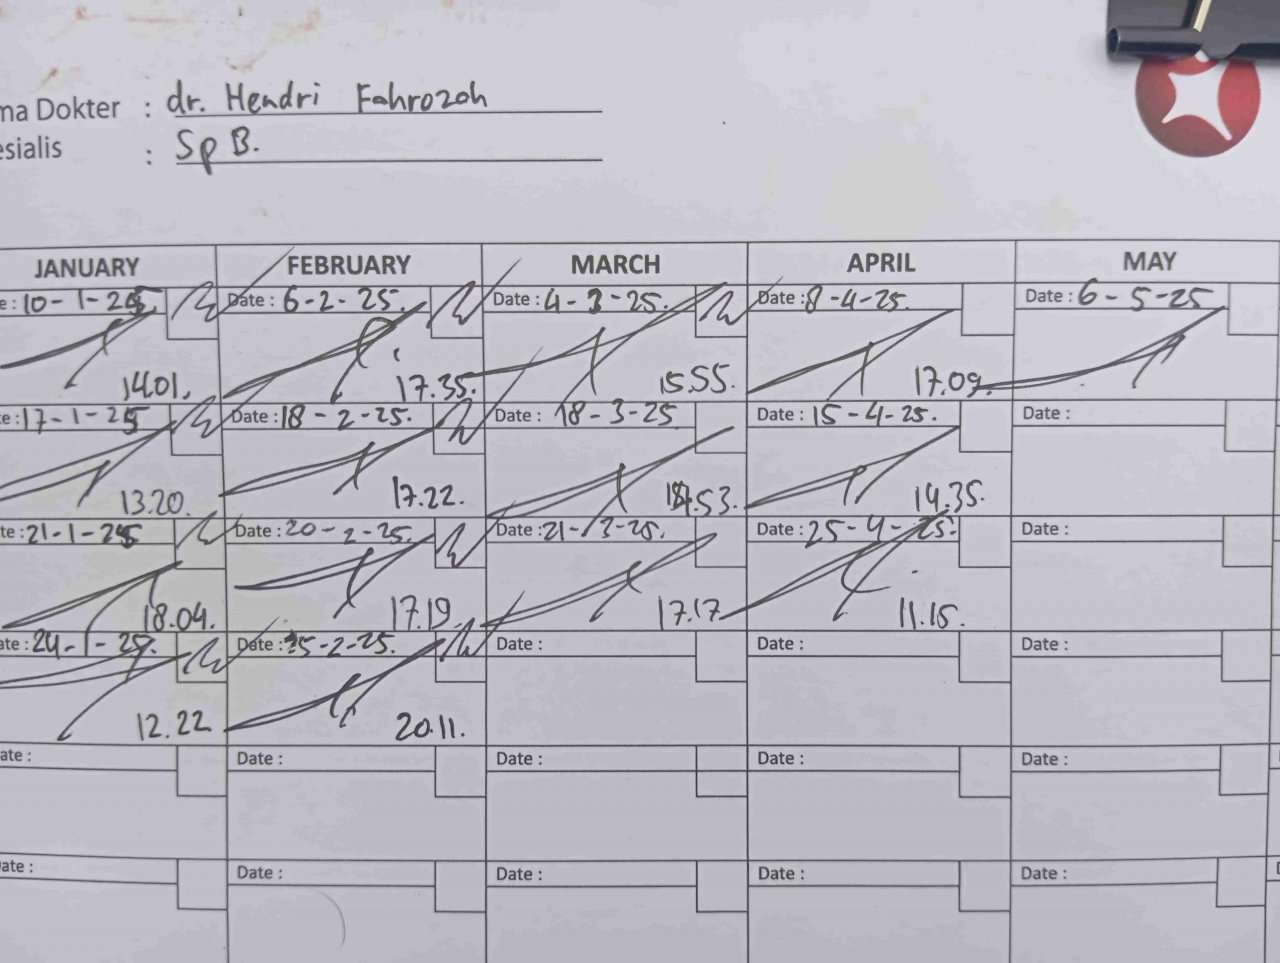 ma Dokter : dr. Hendri Fahrozah
esialis : Sp B.
JANUARY FEBRUARY MARCH APRIL MAY
e : 10-1-25 Date : 6-2-25. Date : 4-3-25. Date : 8-4-25. Date : 6-5-25
14.01. 17.35. 15.55. 17.09.
e : 17-1-25 Date : 18-2-25. Date : 18-3-25 Date : 15-4-25. Date :
13.20. 17.22. 14.35.
te : 21-1-25 Date : 20-2-25. Date : 21-3-25. Date : 25-4-25. Date :
18.04. 17.19. 17.17 11.15.
ate : 24-1-25. Date : 25-2-25. Date : Date : Date :
12.22 20.11.
ate : Date : Date : Date : Date :
ate : Date : Date : Date : Date :